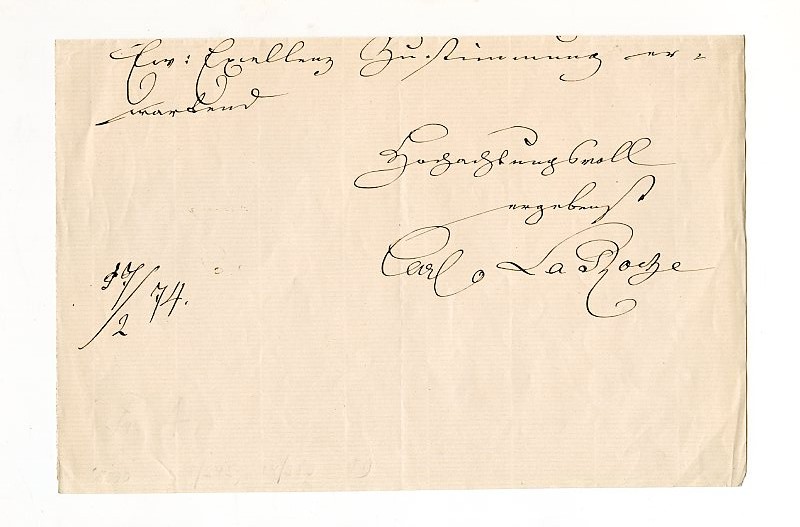 Ew: Excellenz Zustimmung er-
wartend
Hochachtungsvoll
ergebenst
Carl La Roche
/2 74.